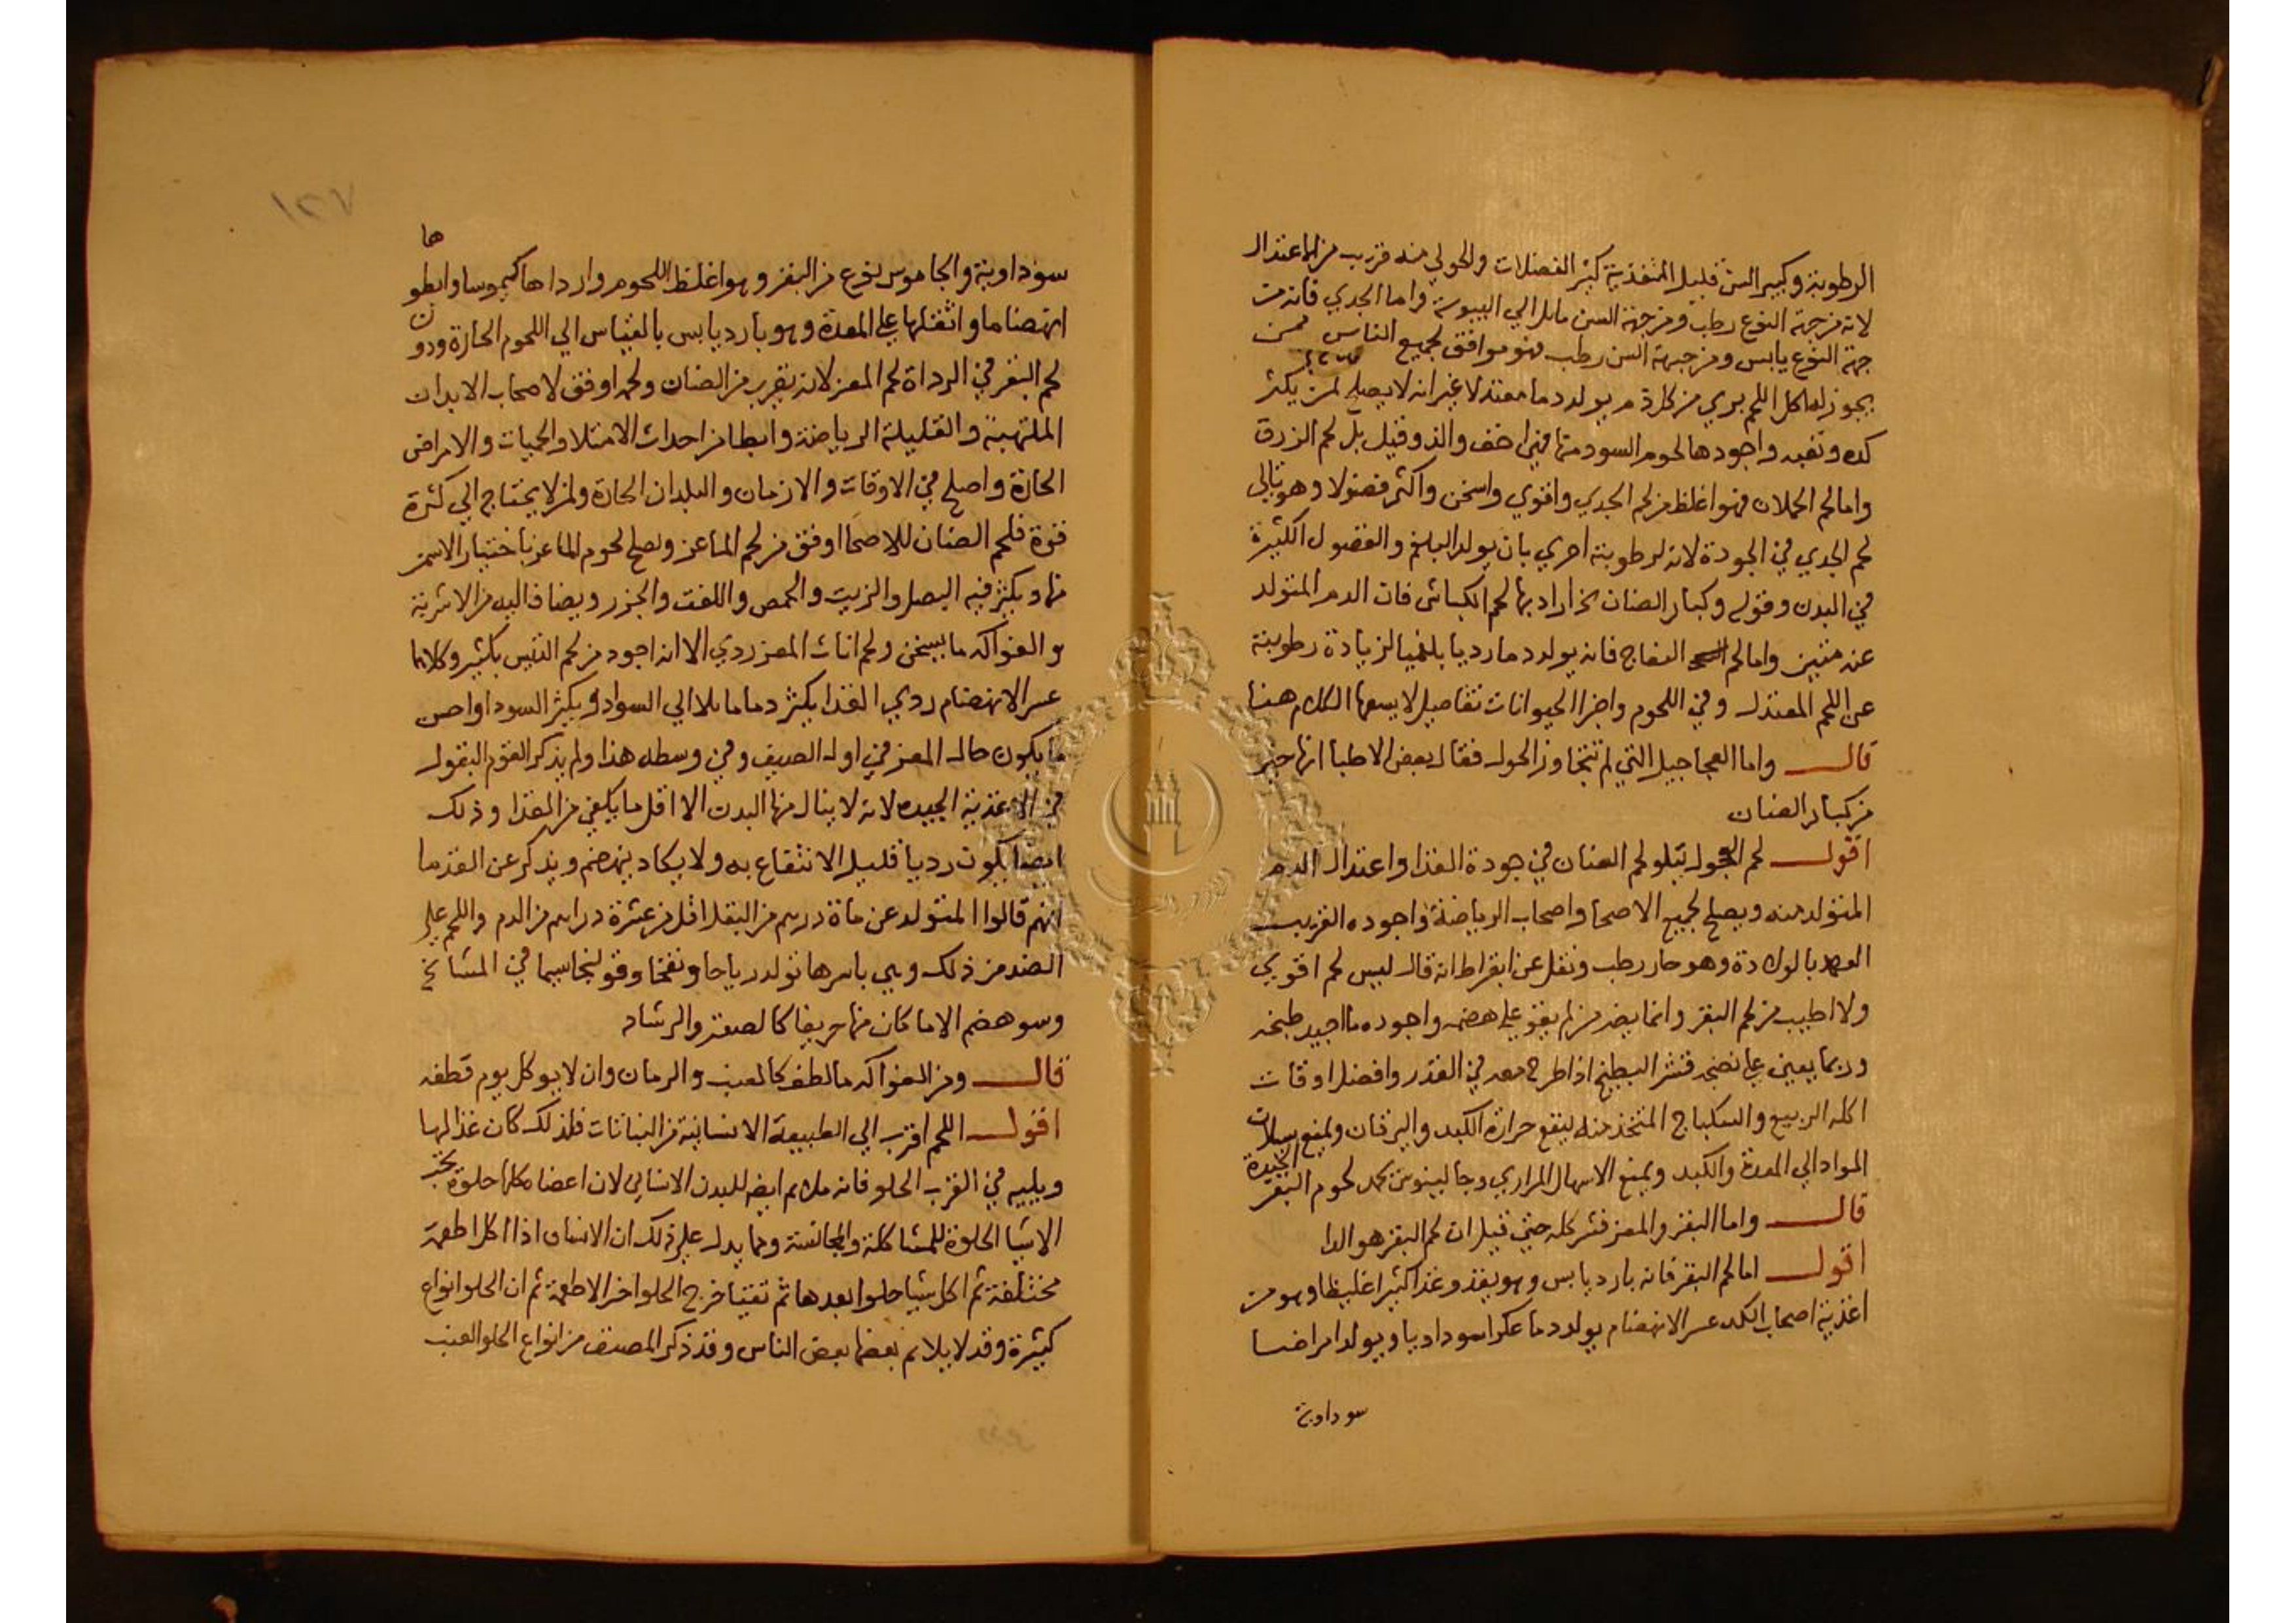 الرطوبة وكبير السن قليل التغذية كثير الفضلات والحولي منه قريب من الاعتدال
لانه من جهة النوع رطب ومن جهة السن مايل الي اليبوسة واما الجدي فانه من
جهة النوع يابس ومن جهة السن رطب فهو موافق لجميع الناس ممن
يجوز له اكل اللحم بري من كل ذم يولد دما معتدلا غير انه لا يصلح لمن يكثر
كده وتعبه واجودها لحوم السود منها فهي اخف والذ وقيل بل لحم الزرق
واما لحم الحملان فهو اغلظ من لحم الجدي واقوي واسخن واكثر فضولا وهو تالي
لحم الجدي في الجودة لانه لرطوبته احري بان يولد البلغم والفضول الكثيرة
في البدن وقوله وكبار الضان اراد بها لحم الكباش فان الدم المتولد
عنه متين واما لحم النعاج فانه يولد دما رديا بلغميا لزيادة رطوبته
عن اللحم المعتدل وفي اللحوم واجزا الحيوانات تفاصيل لا يسعها الكلام هنا
قال واما العجاجيل التي لم تتجاوز الحول فقال بعض الاطبا انها خير
من كبار الضان
اقول لحم العجول يتلو لحم الضان في جودة الغذا واعتدال الدم
المتولد منه ويصلح لجميع الاصحا واصحاب الرياضة واجوده القريب
العهد بالولادة وهو حار رطب ونقل عن ابقراط انه قال ليس لحم اقوي
ولا اطيب من لحم البقر وانما يضر من لم يقو علي هضمه واجوده ما اجيد طبخه
وربما يعين علي نضجه قشر البطيخ اذا طرح معه في القدر وافضل اوقات
اكله الربيع والسكباج المتخذ منه ينفع حرارة الكبد واليرقان ويمنع سيلان
المواد الي المعدة والكبد ويمنع الاسهال المراري وجالينوس يحمد لحوم البقر الجيدة
قال واما البقر والمعز فشر كله حتي قيل ان لحم البقر هو الدا
اقول اما لحم البقر فانه بارد يابس وهو يغذو غذا كثيرا غليظا وهو من
اغذية اصحاب الكد عسر الانهضام يولد دما عكرا سوداويا ويولد امراضا
سوداوية
سوداوية والجاموس نوع من البقر وهو اغلظ اللحوم وارداها كيموسا وابطوها
انهضاما واثقلها علي المعدة وهو بارد يابس بالقياس الي اللحوم الحارة ودون
لحم البقر في الرداة لحم المعز لانه يقرب من الضان ولحمه اوفق لاصحاب الابدان
الملتهبة والقليلة الرياضة وابطا من احداث الامتلا والحميات والامراض
الحارة واصلح في الاوقات والازمان والبلدان الحارة ولمن لا يحتاج الي كثرة
قوة فلحم الضان للاصحا اوفق من لحم الماعز ويصلح لحوم الماعز باختيار الاسمن
منها ويكثر فيه البصل والزيت والحمص واللفت والجزر ويضاف اليه من الاشربة
والفواكه ما يسخن ولحم اناث المعز ردي الا انه اجود من لحم التيس بكثير وكلاهما
عسر الانهضام ردي الغذا يكثر دما مايلا الي السواد ويكثر السودا واحسن
ما يكون حال المعز في اول الصيف وفي وسطه هذا ولم يذكر القوم البقول
في الاغذية الجيده لانه لا ينال منها البدن الا اقل ما يكفي من الغذا وذلك
ايضا يكون رديا قليل الانتفاع به ولا يكاد ينهضم ويذكر عن القدما
انهم قالوا المتولد عن ماة درهم من البقل اقل من عشرة دراهم من الدم واللحم علي
الضد من ذلك وهي باسرها تولد رياحا ونفخا وقولنجا سيما في المشايخ
وسو هضم الا ما كان منها حريفا كالصعتر والرشاد
قال ومن الفواكه ما لطف كالعنب والرمان وان لا يوكل يوم قطفه
اقول اللحم اقرب الي الطبيعة الانسانية من النباتات فلذلك كان غذا لها
ويليه في القرب الحلو فانه ملايم ايضا للبدن الانساني لان اعضاه كلها حلوة
الاشيا الحلوة للمشاكلة والمجانسة ومما يدل علي ذلك ان الانسان اذا اكل اطعمة
مختلفة ثم اكل شيا حلوا بعدها ثم تقيا خرج الحلو اخر الاطعمة ثم ان الحلو انواع
كثيرة وقد لا يلايم بعضها بعض الناس وقد ذكر المصنف من انواع الحلو العنب